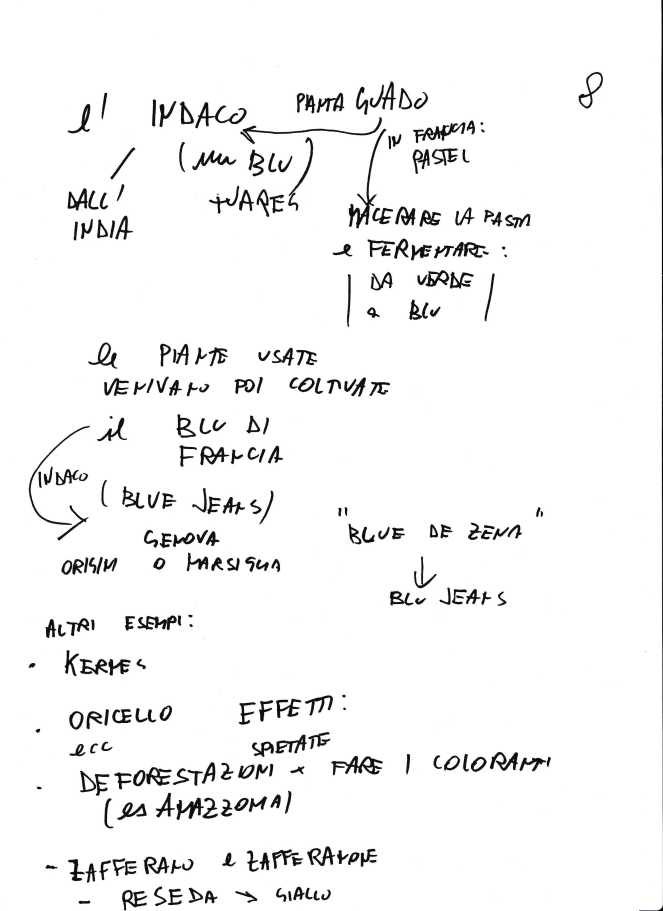 8
l' INDACO
PIANTA GUADO
(un BLU
TUAREG)
DALL'
INDIA
IN FRANCIA:
PASTEL
MACERARE LA PASTA
e FERMENTARE:
DA VERDE
a BLU
le PIANTE USATE
VENIVANO POI COLTIVATE
il BLU DI
FRANCIA
INDACO
(BLUE JEANS)
GENOVA
ORIGIN O MARSIGLIA
"BLUE DE ZENA"
BLU JEANS
ALTRI ESEMPI:
• KERMES
• ORICELLO
ecc
EFFETTI:
SPIETATE
• DEFORESTAZIONI x FARE I COLORANTI
(es AMAZZONIA)
- ZAFFERANO e ZAFFERANONE
- RESEDA → GIALLO